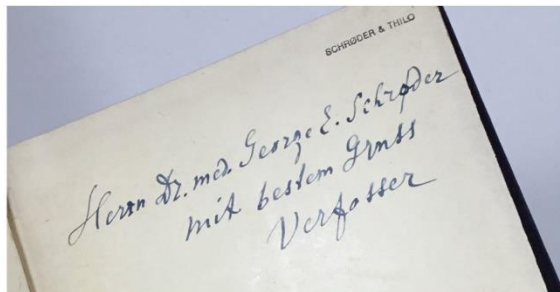 SCHRØDER & THILO
Herrn Dr. med. George E. Schrøder
mit bestem Gruss
Verfasser